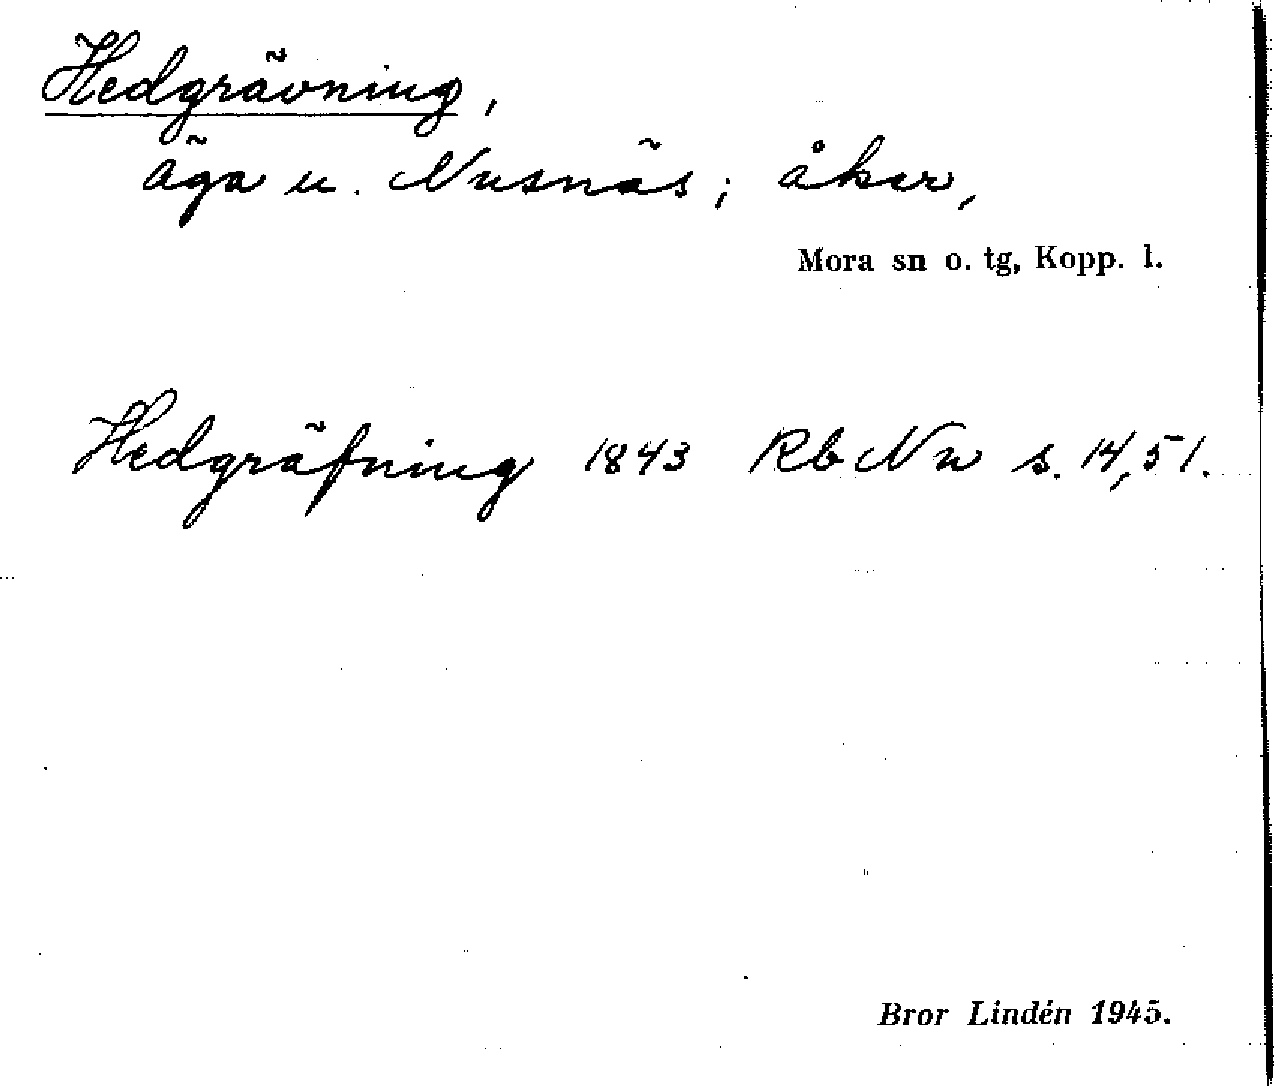 Hedgrävning,
äga u. Nusnäs; åker,
Mora sn o. tg, Kopp. l.
Hedgräfning 1843 Rb Nu s. 14, 51.
Bror Lindén 1945.